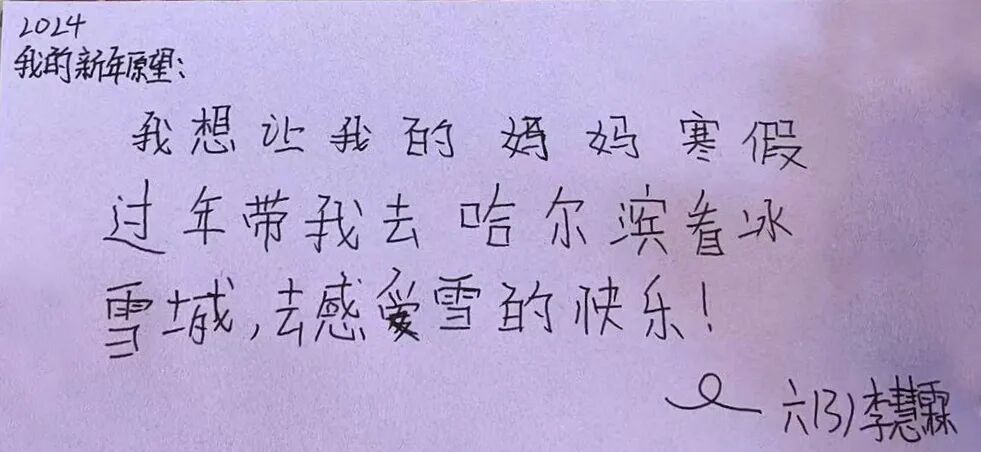 2024
我的新年原望：
我想让我的妈妈寒假
过年带我去哈尔滨看冰
雪城，去感爱雪的快乐！
六(3)李慧霖